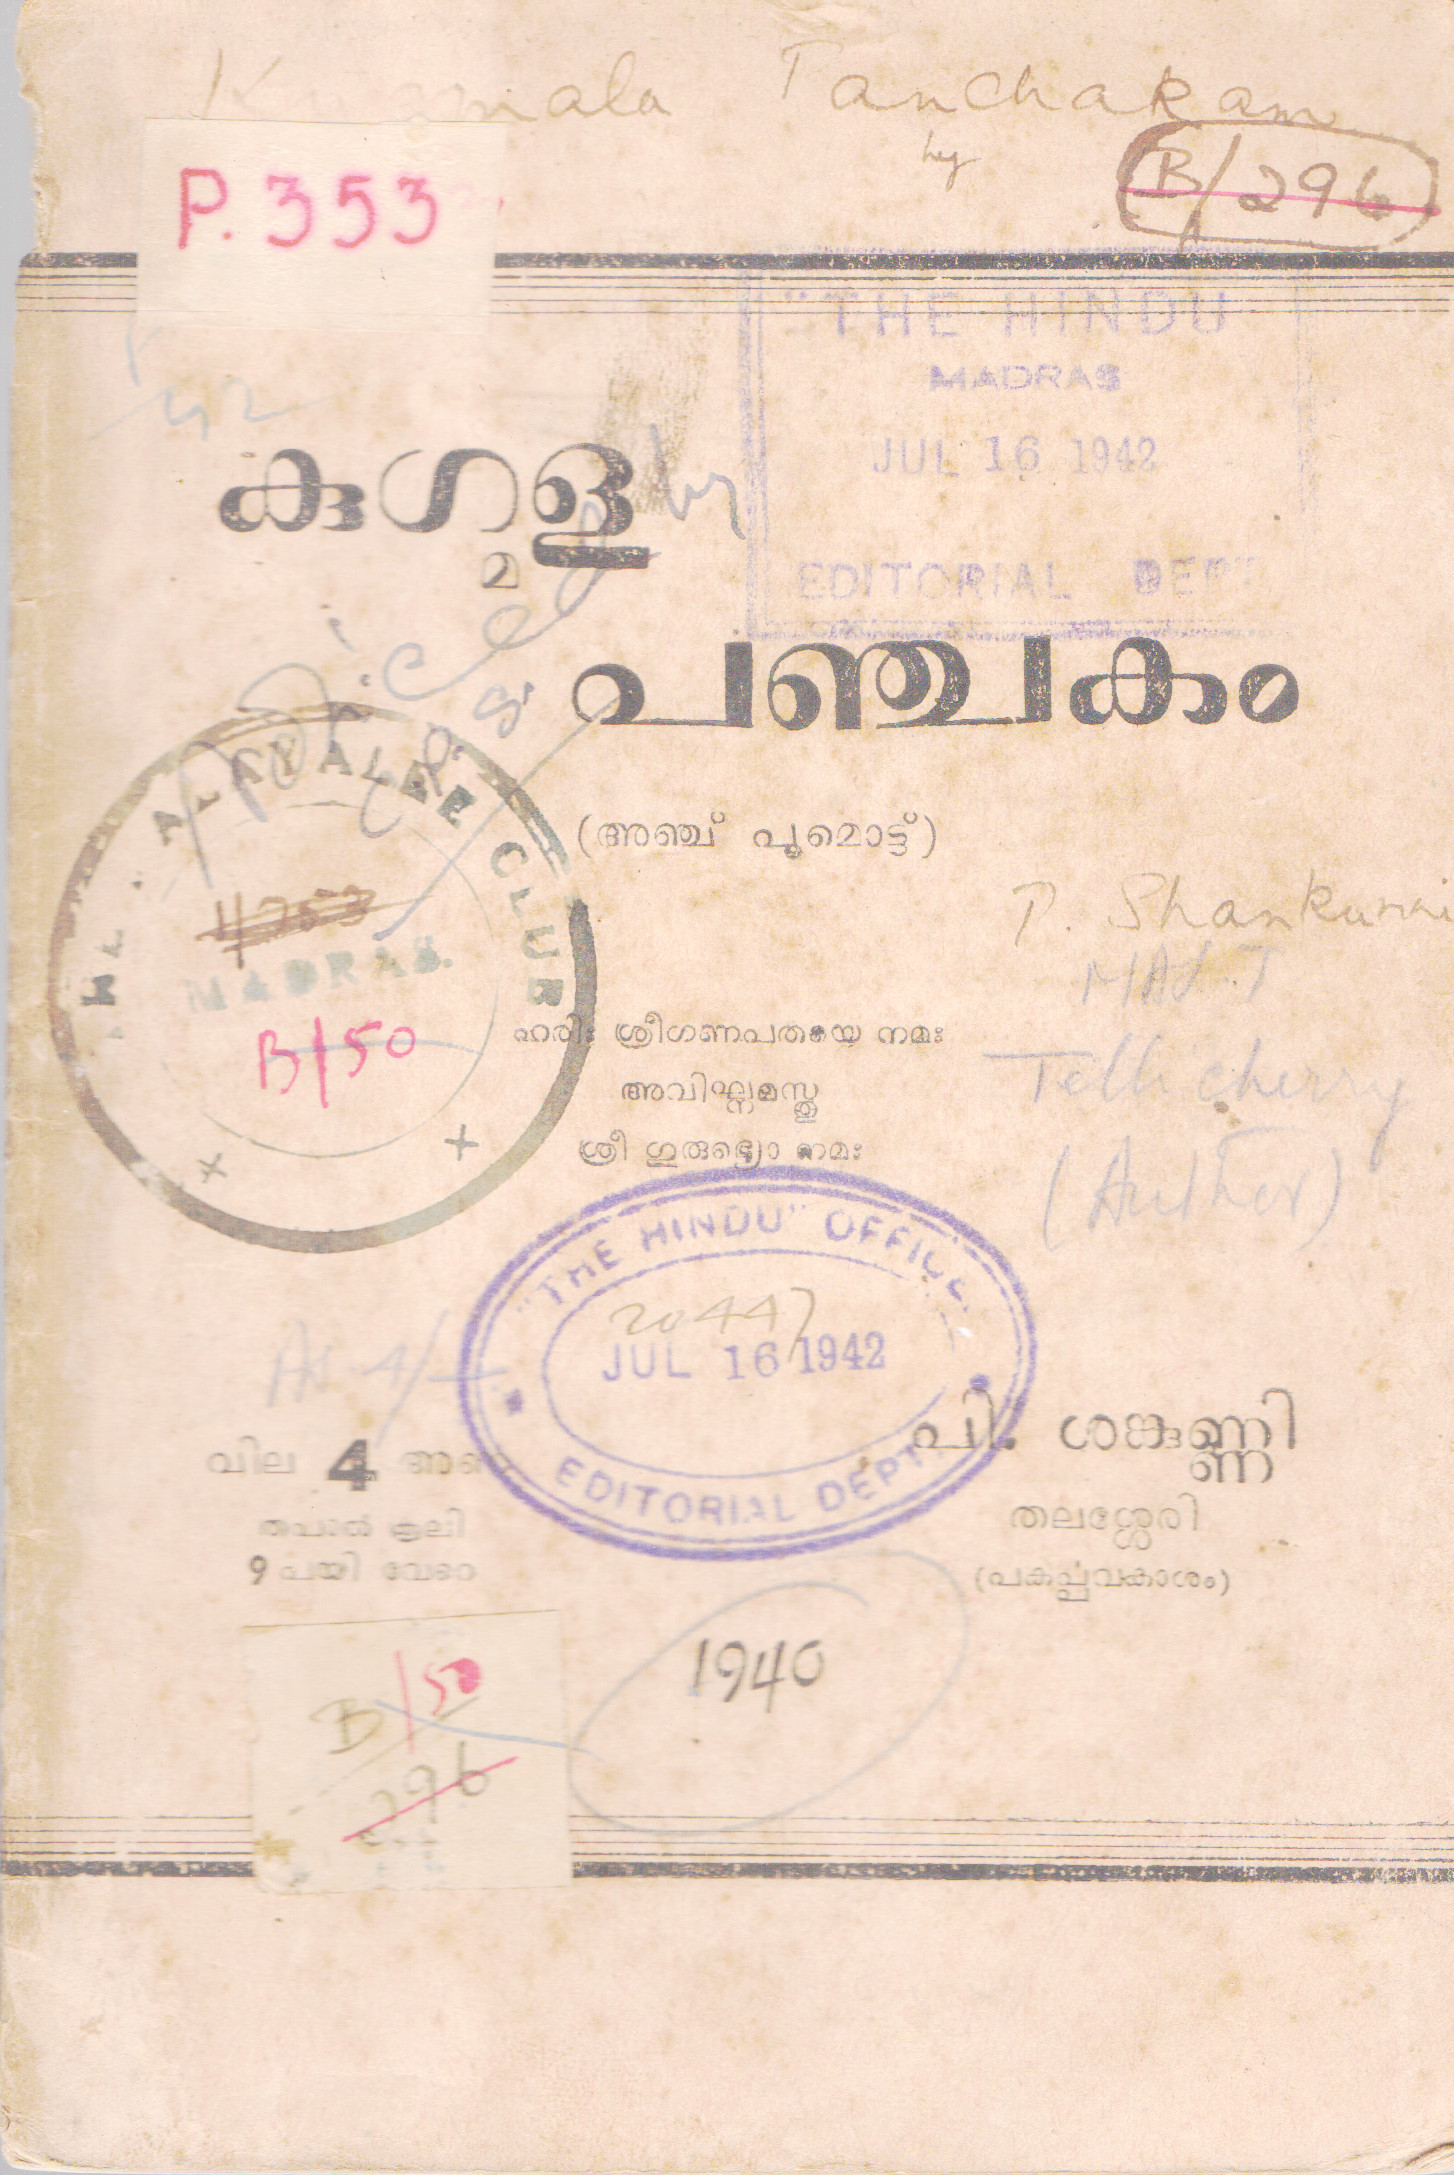 Panchakam
by
B/296
P. 353
"THE HINDU"
MADRAS
JUL 16 1942
EDITORIAL DEPT
കുഗ്മള
പഞ്ചകം
(അഞ്ച് പൂമൊട്ട്)
CLUB
MADRAS.
B/50
P. Shankunni
Tellicherry
(Author)
ഹരിഃ ശ്രീഗണപതയെ നമഃ
അവിഘ്നമസ്തു
ശ്രീ ഗുരുഭ്യൊ നമഃ
"THE HINDU" OFFICE.
20447
JUL 16 1942
EDITORIAL DEPT.
വില 4 അണ
തപാൽ കൂലി
9 പയി വേറെ
പി. ശങ്കുണ്ണി
തലശ്ശേരി
(പകർപ്പവകാശം)
1940
B/50
296